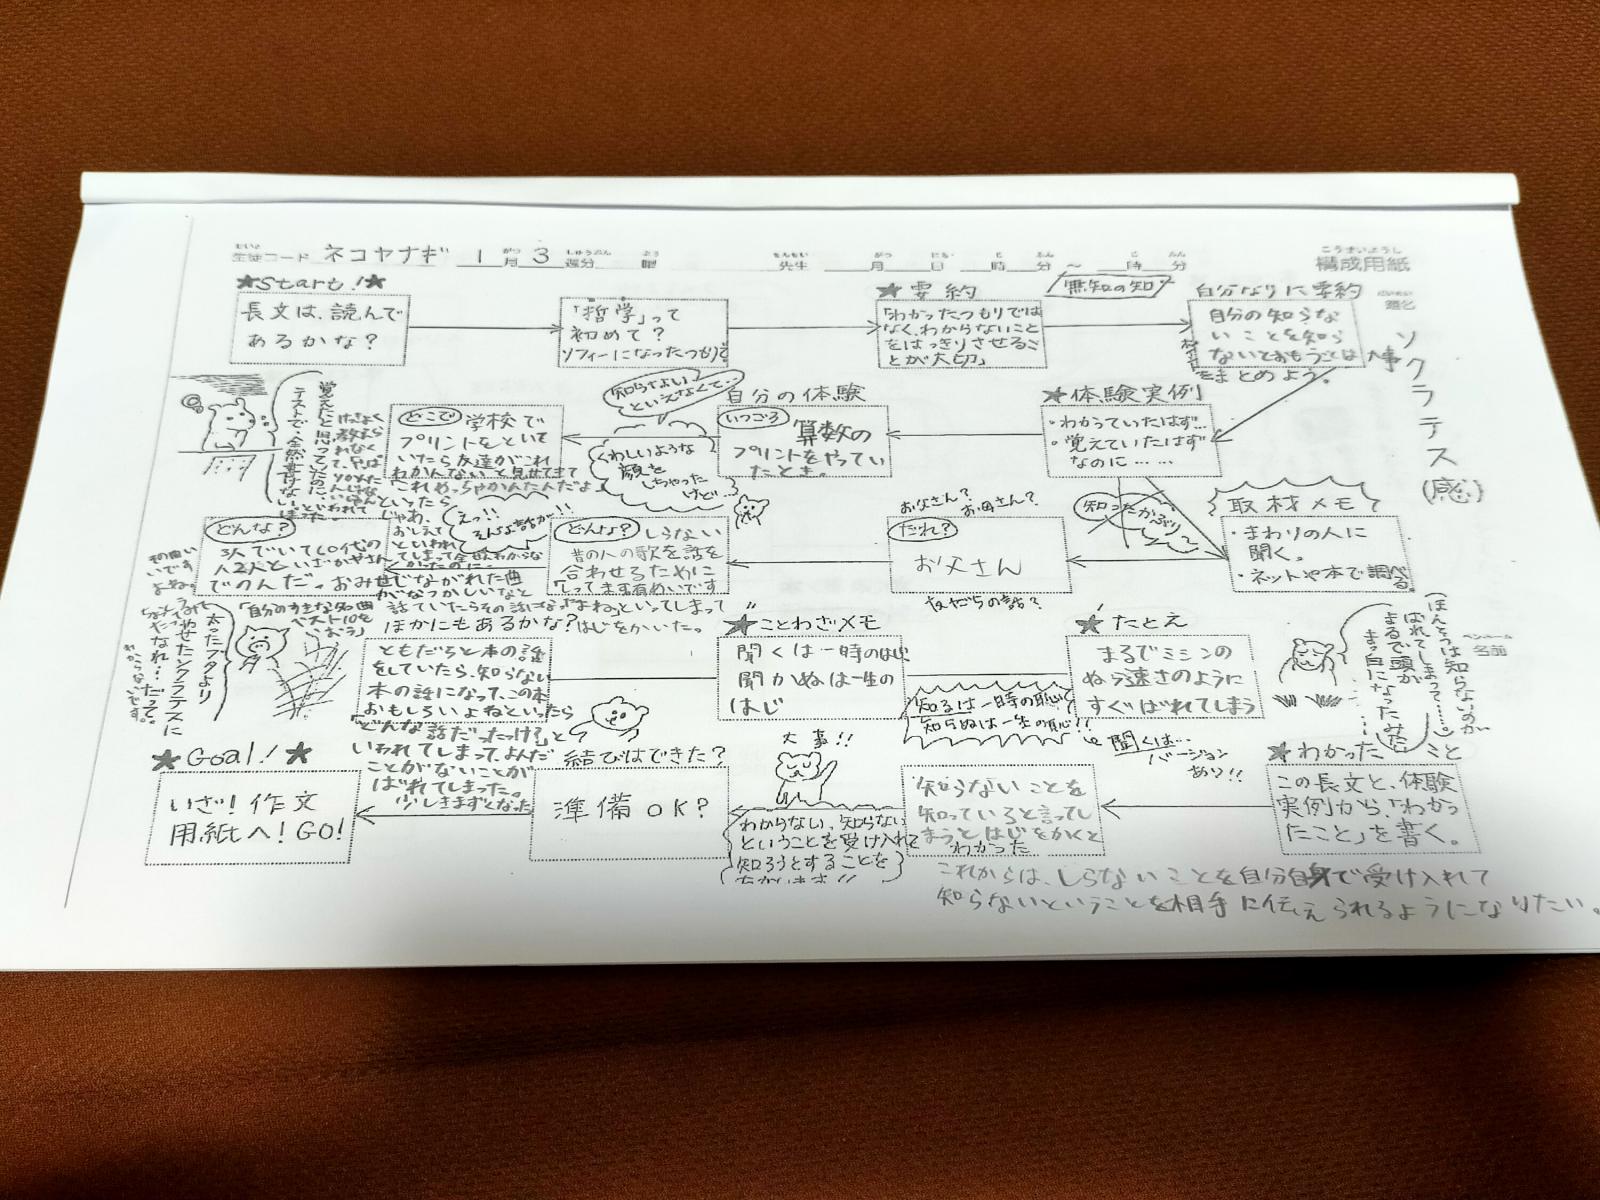 せいと
生徒コード ネコヤナギ 1月 3週分 曜 先生 月 日 時 分 ～ 時 分
こうせいようし
構成用紙
★Start!★
長文は、読んで
あるかな?
「哲学」って
初めて?
ソフィーになったつもりで
★要約
無知の知
「わかったつもりでは
なく、わからないこと
をはっきりさせるこ
とが大切」
自分なりに要約
自分の知らな
いことを知ら
ないとおもうことは大事
をまとめよう。
題化
ソクラテス(感)
★体験実例
・わかっていたはず…
・覚えていたはず
なのに……
自分の体験
いつごろ
算数の
プリントをやってい
たとき。
知らないよ
といえなくて…
くわしいような
顔を
しちゃった
けど…
どこで
学校で
プリントをといて
いたら友達がこれ
わかんないと見せてきて
「これめっちゃかんたんだよ」
といったら
じゃあ、
おしえて
といわれ
てしまって全然わからな
かったのに…
覚えたと思っていたのに、
テストで、全然書けない
取材メモ
・まわりの人に
聞く。
・ネットや本で調べる。
知ったかぶり?
お父さん?
お母さん?
だれ?
お父さん
友だちの話?
えっ!!
そんな話が!!
どんな?
しらない
昔の人の歌を話を
合わせるために
「しってます有めいです
よね」といってしまって
はじをかいた。
どんな?
3人でいて60代の
人2人といざかやさん
でのんだ。おみせでながれた曲
がなつかしいなと
話ていたらその話になって
ほかにもあるかな?
その曲いいですよね。
「自分のすきな名曲
ベスト10を
いおう」
太ったブタより
やせたソクラテスに
なれ…だって。
★たとえ
まるでミシンの
ぬう速さのように
すぐばれてしまう
(ほんとうは知らないのが
ばれてしまって……)
まるで頭が
まっ白になったみたい
ペンネーム
名前
★ことわざメモ
聞くは一時のはじ
聞かぬは一生の
はじ
知るは一時の恥
知らぬは一生の恥!!
聞くは…
バージョン
あり!!
ともだちと本の話
をしていたら、知らない
本の話になって、この本
おもしろいよねといったら
「どんな話だったっけ?」と
いわれてしまって、よんだ
ことがないことが
ばれてしまった。
少しきまずくなった
★わかったこと
この長文と、体験
実例から、「わかっ
たこと」を書く。
知らないことを
知っていると言ってし
まうとはじをかくと
わかった
これからは、しらないことを自分自身で受け入れて
知らないということを相手に伝えられるようになりたい。
大事!!
わからない、知らない
ということを受け入れて
知ろうとすることを
結びはできた?
準備OK?
★Goal!★
いざ!作文
用紙へ!GO!